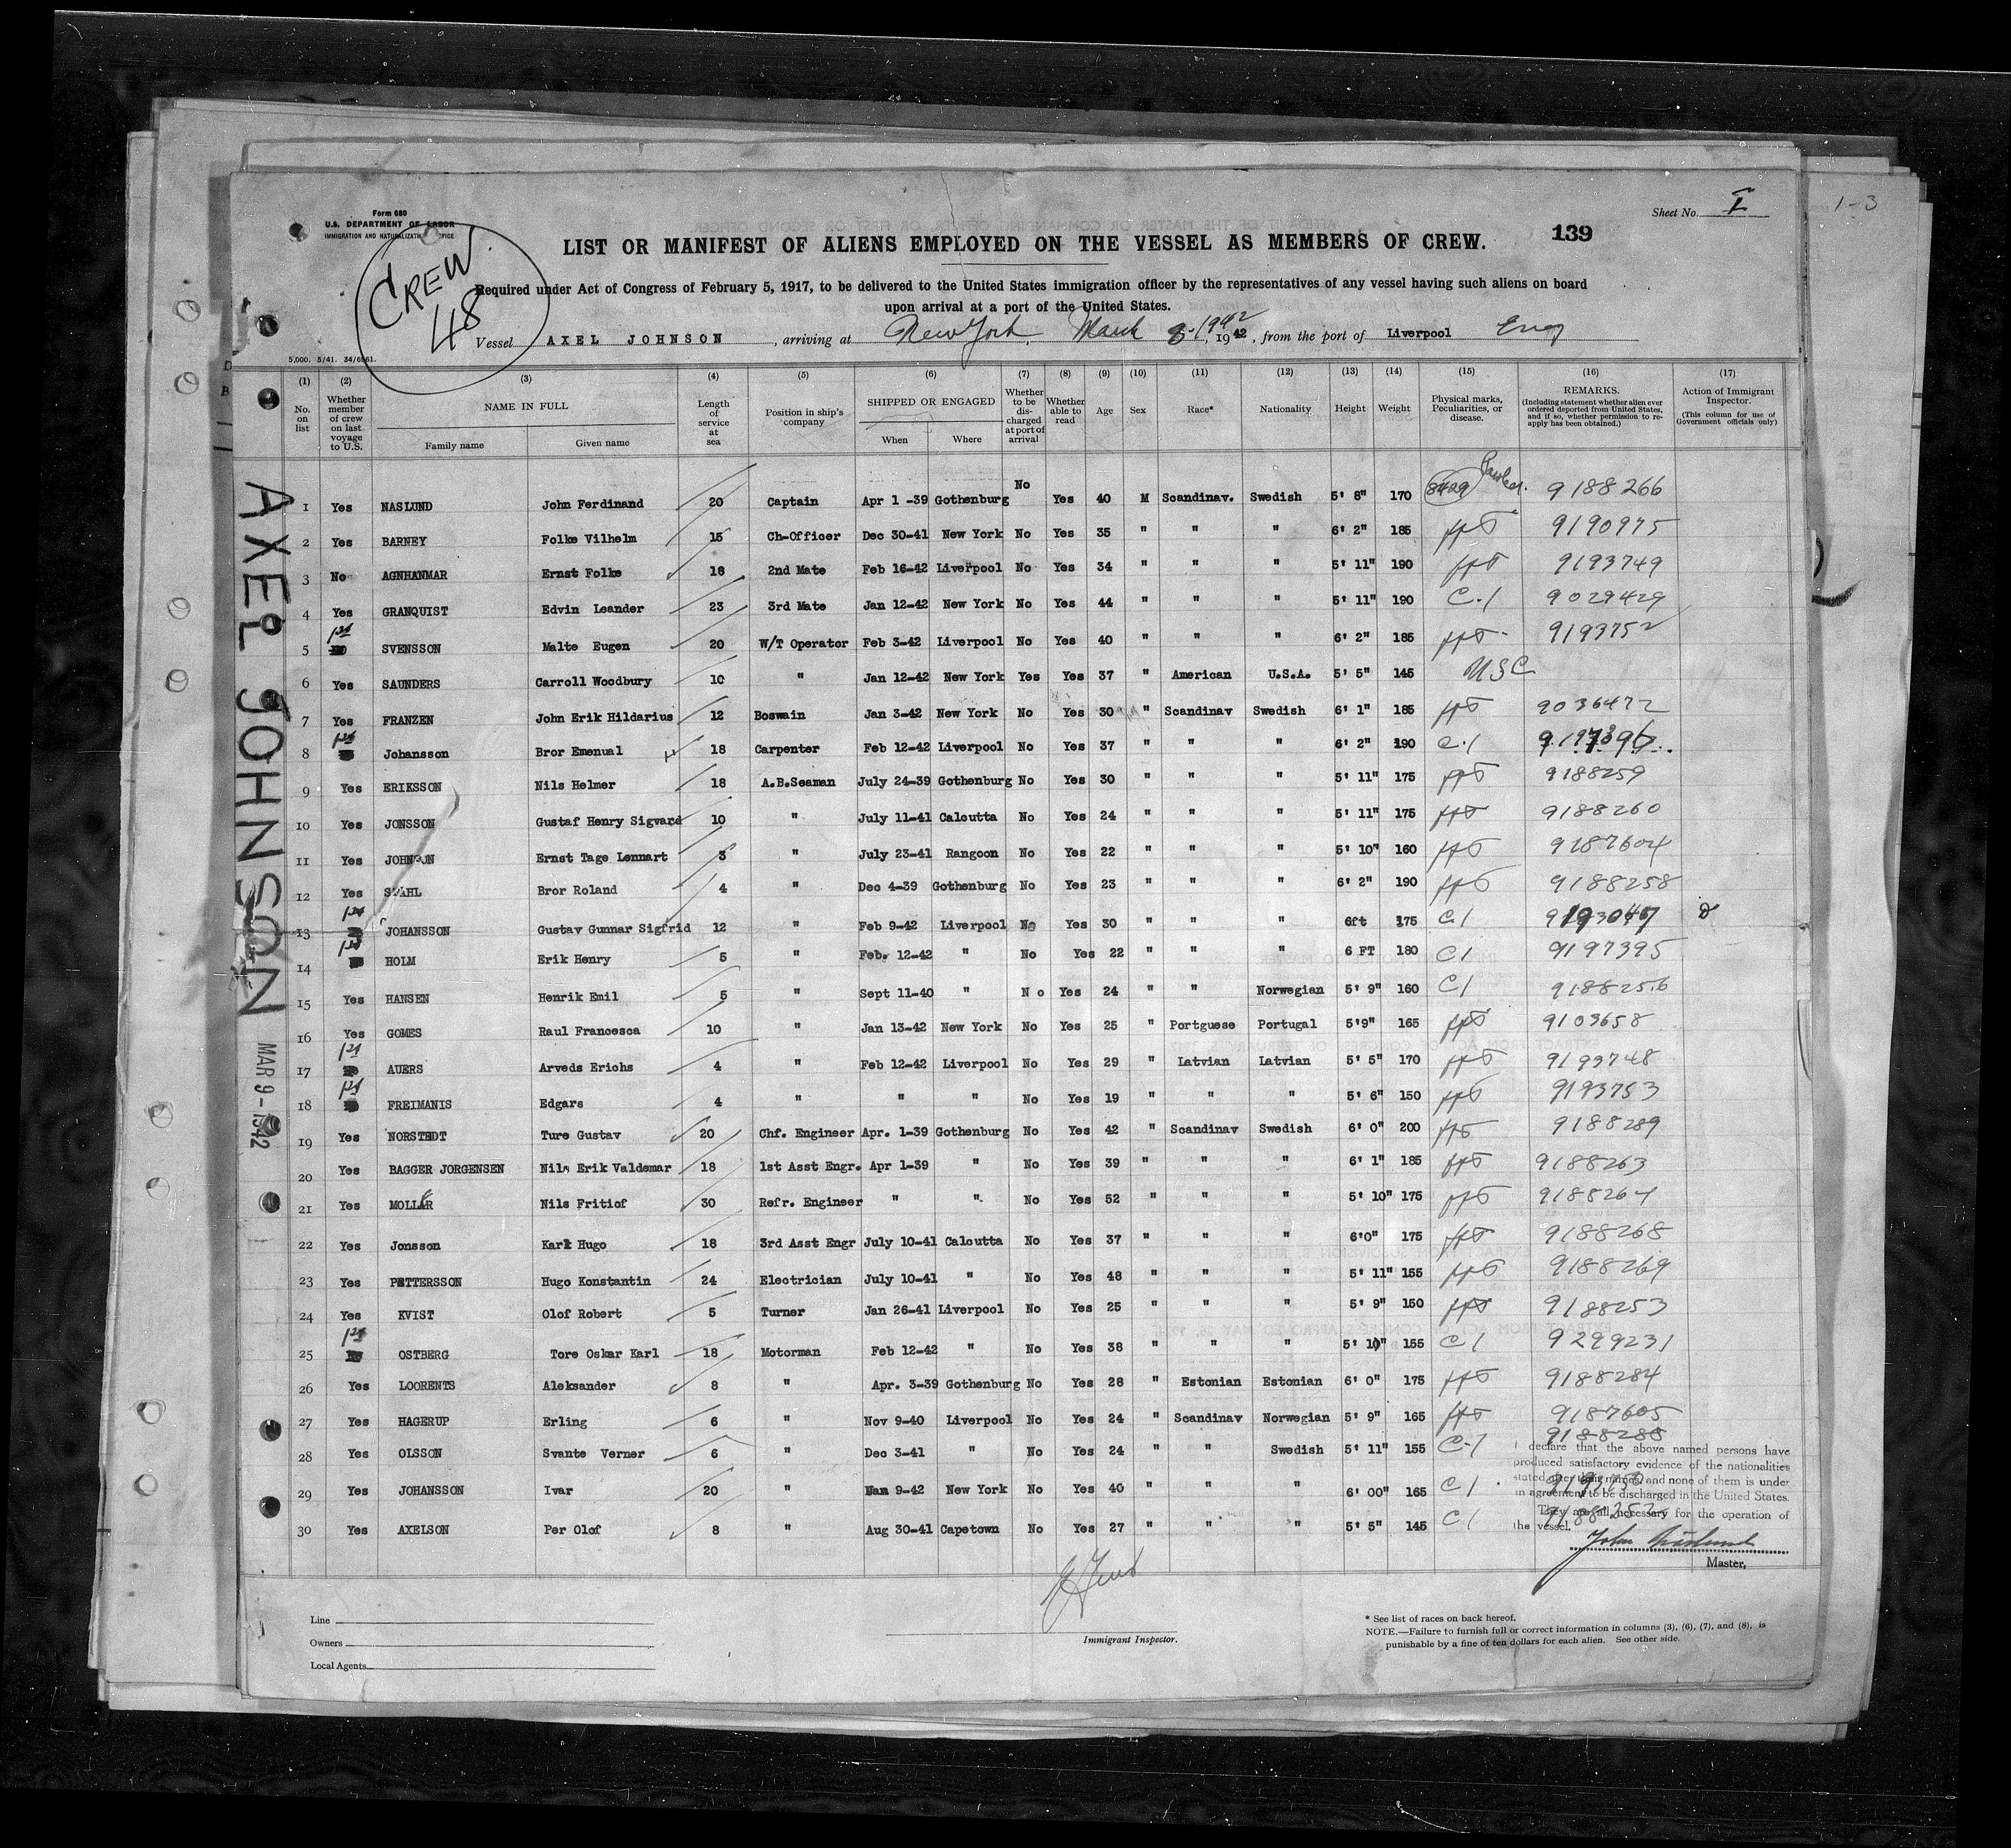 1-3
Form 680
U.S. DEPARTMENT OF LABOR
IMMIGRATION AND NATURALIZATION SERVICE
Sheet No. I
139
LIST OR MANIFEST OF ALIENS EMPLOYED ON THE VESSEL AS MEMBERS OF CREW.
CREW 48
Required under Act of Congress of February 5, 1917, to be delivered to the United States immigration officer by the representatives of any vessel having such aliens on board
upon arrival at a port of the United States.
Vessel AXEL JOHNSON, arriving at New York, March 8-1942, 1942, from the port of Liverpool Eng
5,000. 5/41. 34/6561.
(1) (2) (3) (4) (5) (6) (7) (8) (9) (10) (11) (12) (13) (14) (15) (16) (17)
No. on list Whether member of crew on last voyage to U.S. NAME IN FULL Family name Given name Length of service at sea Position in ship's company SHIPPED OR ENGAGED When Where Whether to be discharged at port of arrival Whether able to read Age Sex Race* Nationality Height Weight Physical marks, Peculiarities, or disease. REMARKS. (Including statement whether alien ever ordered deported from United States, and if so, whether permission to reapply has been obtained.) Action of Immigrant Inspector. (This column for use of Government officials only)
AXEL JOHNSON
MAR 9-1942
1 Yes NASLUND John Ferdinand 20 Captain Apr 1 -39 Gothenburg No Yes 40 M Scandinav. Swedish 5' 8" 170 8429 9188266
2 Yes BARNEY Folke Vilhelm 15 Ch-Officer Dec 30-41 New York No Yes 35 " " " 6' 2" 185 ppt 9190975
3 No AGNHANMAR Ernst Folke 18 2nd Mate Feb 16-42 Liverpool No Yes 34 " " " 5' 11" 190 ppt 9193749
4 Yes GRANQUIST Edvin Leander 23 3rd Mate Jan 12-42 New York No Yes 44 " " " 5' 11" 190 C.1 9029429
5 1st SVENSSON Malte Eugen 20 W/T Operator Feb 3-42 Liverpool No Yes 40 " " " 6' 2" 185 ppt 9193752
6 Yes SAUNDERS Carroll Woodbury 10 " Jan 12-42 New York Yes Yes 37 " American U.S.A. 5' 5" 145 USC
7 Yes FRANZEN John Erik Hildarius 12 Boswain Jan 3-42 New York No Yes 30 " Scandinav Swedish 6' 1" 185 ppt 9036472
8 1st Johansson Bror Emenual 18 Carpenter Feb 12-42 Liverpool No Yes 37 " " " 6' 2" 190 C.1 9197396
9 Yes ERIKSSON Nils Helmer 18 A.B.Seaman July 24-39 Gothenburg No Yes 30 " " " 5' 11" 175 ppt 9188259
10 Yes JONSSON Gustaf Henry Sigvard 10 " July 11-41 Calcutta No Yes 24 " " " 5' 11" 175 ppt 9188260
11 Yes JOHNSON Ernst Tage Lennart 3 " July 23-41 Rangoon No Yes 22 " " " 5' 10" 160 ppt 9187604
12 Yes STAHL Bror Roland 4 " Dec 4-39 Gothenburg No Yes 23 " " " 6' 2" 190 ppt 9188258
13 1st JOHANSSON Gustav Gunnar Sigfrid 12 " Feb 9-42 Liverpool No Yes 30 " " " 6ft 175 C.1 9193047
14 1st HOLM Erik Henry 5 " Feb. 12-42 " No Yes 22 " " " 6 FT 180 C1 9197395
15 Yes HANSEN Henrik Emil 5 " Sept 11-40 " N o Yes 24 " " Norwegian 5' 9" 160 C1 9188256
16 Yes GOMES Raul Francesca 10 " Jan 13-42 New York No Yes 25 " Portguese Portugal 5'9" 165 ppt 9103658
17 1st AUERS Arveds Erichs 4 " Feb 12-42 Liverpool No Yes 29 " Latvian Latvian 5' 5" 170 ppt 9193748
18 1st FREIMANIS Edgars 4 " " " No Yes 19 " " " 5' 6" 150 ppt 9193753
19 Yes NORSTEDT Ture Gustav 20 Chf. Engineer Apr. 1-39 Gothenburg No Yes 42 " Scandinav Swedish 6' 0" 200 ppt 9188289
20 Yes BAGGER JORGENSEN Nils Erik Valdemar 18 1st Asst Engr. Apr 1-39 " No Yes 39 " " " 6' 1" 185 ppt 9188263
21 Yes MOLLER Nils Fritiof 30 Refr. Engineer " " No Yes 52 " " " 5' 10" 175 ppt 9188264
22 Yes Jonsson Karl Hugo 18 3rd Asst Engr July 10-41 Calcutta No Yes 37 " " " 6'0" 175 ppt 9188268
23 Yes PETTERSSON Hugo Konstantin 24 Electrician July 10-41 " No Yes 48 " " " 5' 11" 155 ppt 9188269
24 Yes KVIST Olof Robert 5 Turner Jan 26-41 Liverpool No Yes 25 " " " 5' 9" 150 ppt 9188253
25 1st OSTBERG Tore Oskar Karl 18 Motorman Feb 12-42 " No Yes 38 " " " 5' 10" 155 C1 9299231
26 Yes LOORENTS Aleksander 8 " Apr. 3-39 Gothenburg No Yes 28 " Estonian Estonian 6' 0" 175 ppt 9188284
27 Yes HAGERUP Erling 6 " Nov 9-40 Liverpool No Yes 24 " Scandinav Norwegian 5' 9" 165 ppt 9187605
28 Yes OLSSON Svante Verner 6 " Dec 3-41 " No Yes 24 " " Swedish 5' 11" 155 C-1 9188288
29 Yes JOHANSSON Ivar 20 " Jan 9-42 New York No Yes 40 " " " 6' 00" 165 C1
30 Yes AXELSON Per Olof 8 " Aug 30-41 Capetown No Yes 27 " " " 5' 5" 145 C1 9188252
I declare that the above named persons have
produced satisfactory evidence of the nationalities
stated after their names, and none of them is under
an agreement to be discharged in the United States.
They are all necessary for the operation of
the vessel.
John Näslund
Master.
Line
Owners
Local Agents
Immigrant Inspector.
* See list of races on back hereof.
NOTE.—Failure to furnish full or correct information in columns (3), (6), (7), and (8), is
punishable by a fine of ten dollars for each alien. See other side.